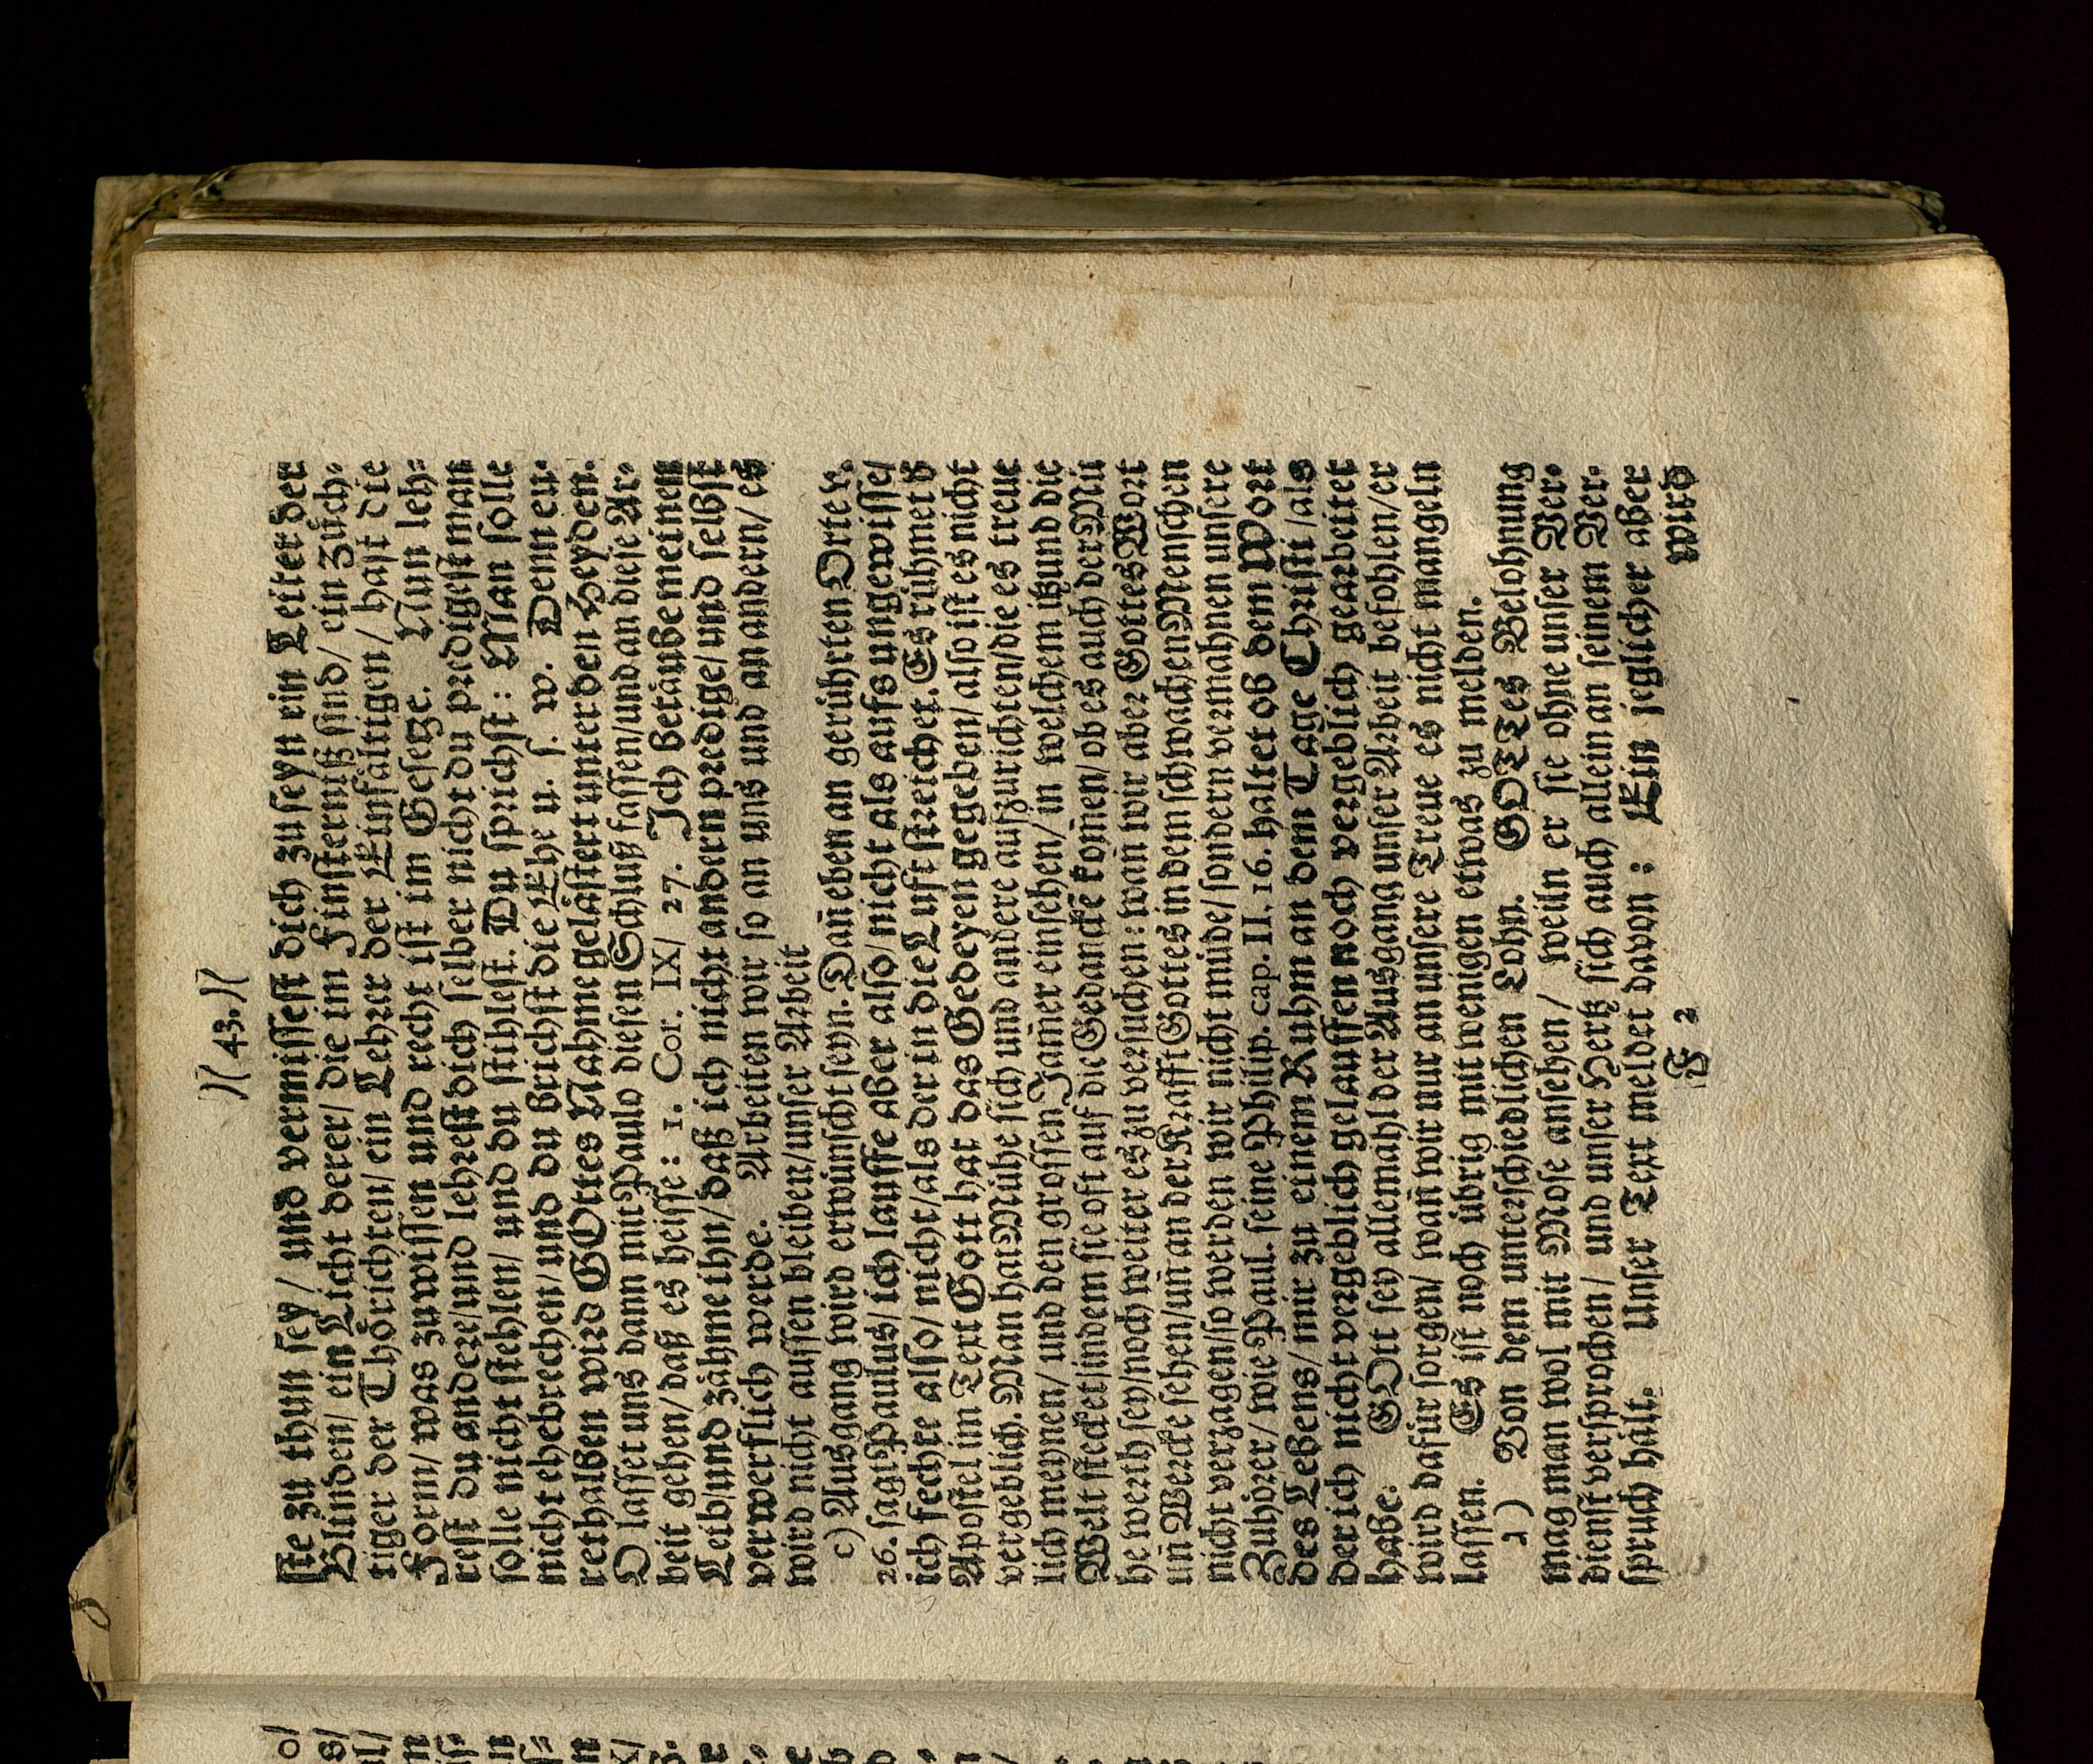 )( 43. )(
ste zu thun sey/ und vermissest dich zu seyn ein Leiter der
Blinden/ ein Licht derer/ die im Finsterniß sind/ ein Züch-
tiger der Thörichten/ ein Lehrer der Einfältigen/ hast die
Form/ was zu wissen und recht ist im Gesetze. Nun leh-
rest du andere/ und lehrest dich selber nicht du predigest man
solle nicht stehlen/ und du stihlest. Du sprichst: Man solle
nicht ehebrechen/ und du brichst die Ehe u. s. w. Denn eu-
rethalben wird GOttes Nahme gelästert unter den Heyden.
O lasset uns dann mit Paulo diesen Schluß fassen/ und an diese Ar-
beit gehen/ daß es heisse: 1. Cor. IX/ 27. Ich betäube meinen
Leib/ und zähme ihn/ daß ich nicht andern predige/ und selbst
verwerflich werde. Arbeiten wir so an uns und an andern/ es
wird nicht aussen bleiben/ unser Arbeit
c) Ausgang wird erwünscht seyn. Dañ eben an gerührten Orte v.
26. sagt Paulus/ ich lauffe aber also/ nicht als aufs ungewisse/
ich fechte also/ nicht/ als der in die Luft streichet. Es rühmet d
Apostel im Text Gott hat das Gedeyen gegeben/ also ist es nicht
vergeblich. Man hat Mühe sich und andere aufzurichten/ die es treu
lich meynen/ und den grossen Jam̃er einsehen/ in welchem itzund die
Welt stecket/ indem sie oft auf die Gedancke kom̃en/ ob es auch der Mü
he werth sey/ noch weiter es zu versuchen: wañ wir aber Gottes Wort
uñ Wercke sehen/ uñ an der Krafft Gottes in dem schwachen Menschen
nicht verzagen/ so werden wir nicht müde/ sondern vermahnen unsere
Zuhörer/ wie Paul. seine Philip. cap. II. 16. haltet ob dem Wort
des Lebens/ mir zu einem Ruhm an dem Tage Christi/ als
der ich nicht vergeblich gelauffen noch vergeblich gearbeitet
habe. GOtt sey allemahl der Ausgang unser Arbeit befohlen/ er
wird dafür sorgen/ wañ wir nur an unsere Treue es nicht mangeln
lassen. Es ist noch übrig mit wenigen etwas zu melden.
2) Von dem unterschiedlichen Lohn. GOTTes Belohnung
mag man wol mit Mose ansehen/ weiln er sie ohne unser Ver-
dienst versprochen/ und unser Hertz sich auch allein an seinem Ver-
spruch hält. Unser Text meldet davon: Ein jeglicher aber
F 2 wird